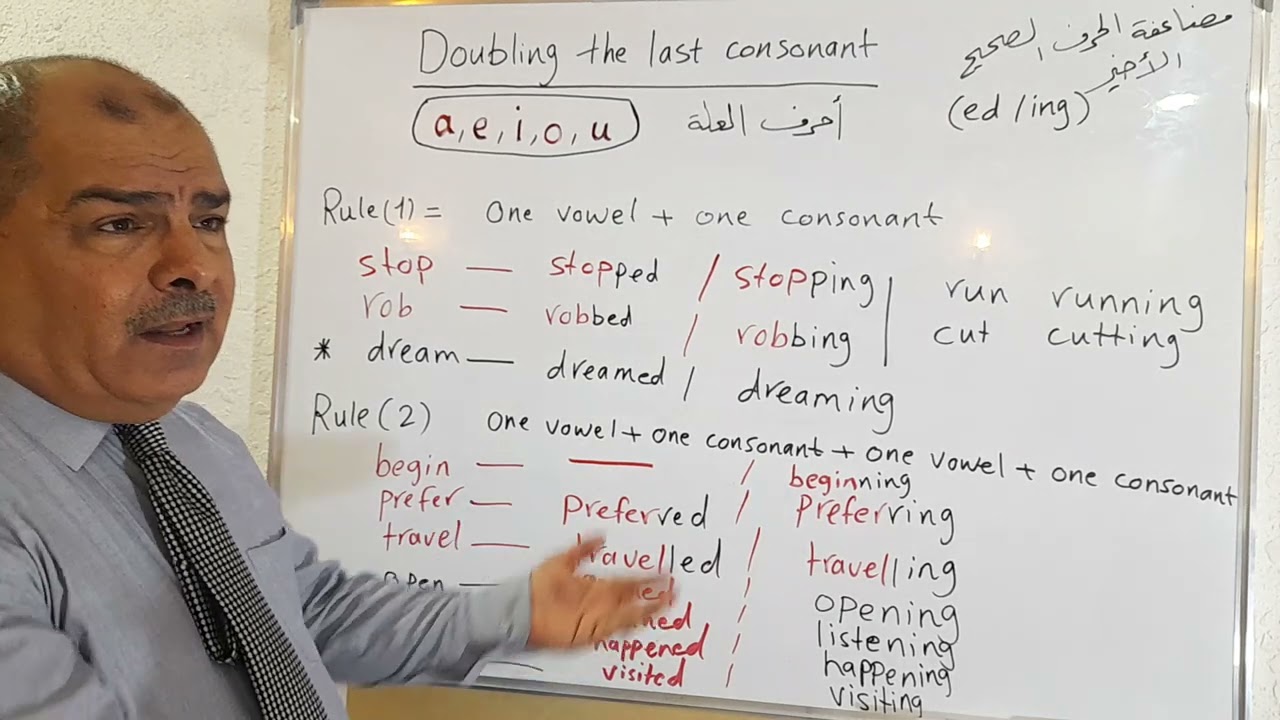 Doubling the last consonant
مضاعفة الحرف الصحيح
الأخير
(ed / ing)
a, e, i, o, u أحرف العلة
Rule (1) = One vowel + one consonant
stop — stopped / stopping | run running
rob — robbed / robbing | cut cutting
* dream — dreamed / dreaming
Rule (2) One vowel + one consonant + one vowel + one consonant
begin — — / beginning
prefer — Preferred / Preferring
travel — travelled / travelling
open — / opening
/ listening
happened / happening
visited / visiting